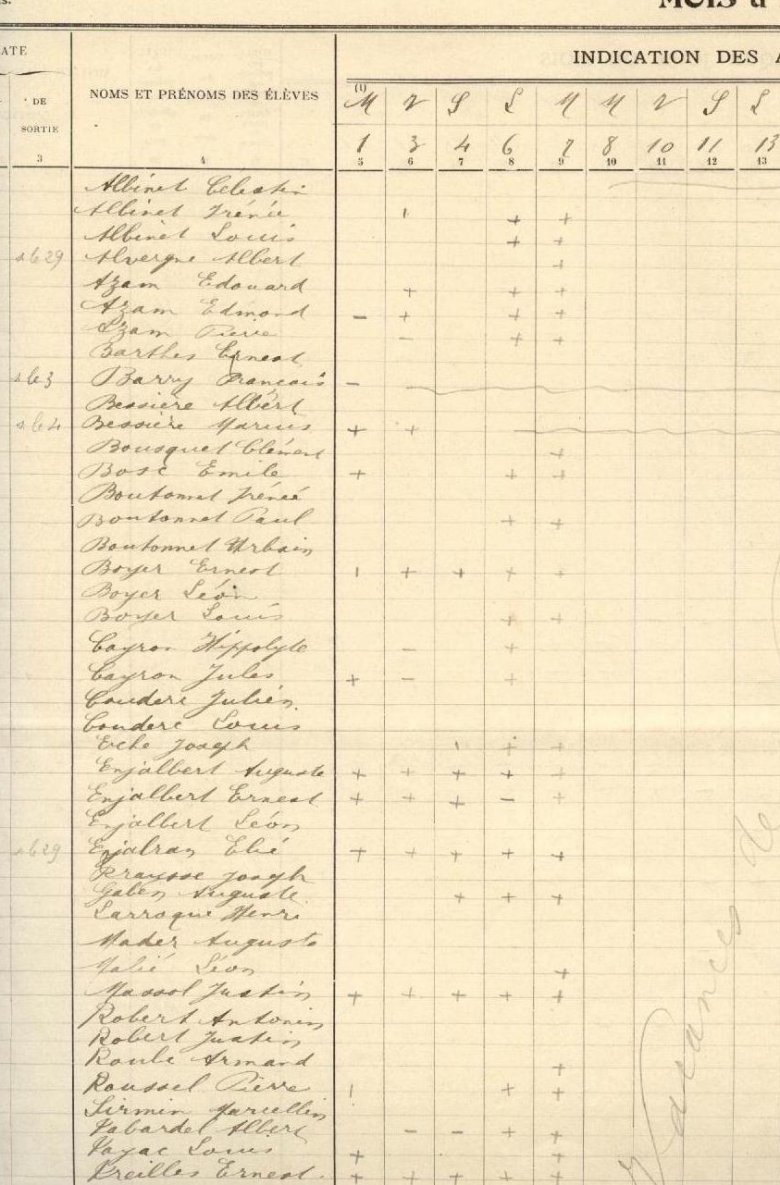 MOIS d
ATE
INDICATION DES A
NOMS ET PRÉNOMS DES ÉLÈVES
DE
SORTIE
(1) M V S L M M V S L
1 3 4 6 7 8 10 11 13
3 4 5 6 7 8 9 10 11 12 13
Albinet Célestin
Albinet Irénée
Albinet Louis
Alvergne Albert
Azam Edouard
Azam Edmond
Azam Pierre
Barthes Ernest
Barry François
Bessière Albert
Bessière Marius
Bousquet Clément
Bosc Emile
Boutonnet Irénée
Boutonnet Paul
Boutonnet Urbain
Boyer Ernest
Boyer Léon
Boyer Louis
Cayron Hippolyte
Cayron Jules
Couderc Julien
Couderc Louis
Eche Joseph
Enjalbert Auguste
Enjalbert Ernest
Enjalbert Léon
Enjalran Elie
Fraysse Joseph
Galen Auguste
Larroque Henri
Mader Auguste
Malié Léon
Massol Justin
Robert Antonin
Robert Justin
Roube Armand
Roussel Pierre
Sirmin Marcellin
Tabardel Albert
Vayac Louis
Vreilles Ernest
Vacances de